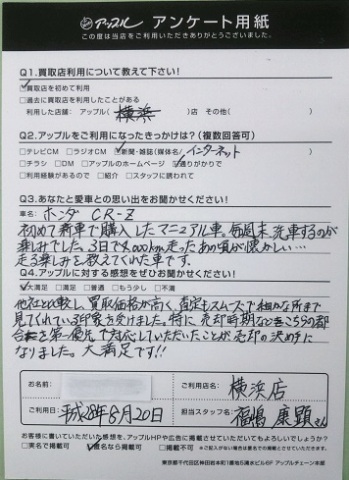 アップル アンケート用紙
この度は当店をご利用いただきありがとうございました。
Q1.買取店利用について教えて下さい!
買取店を初めて利用
□過去に買取店を利用したことがある
利用した店舗: アップル( 横浜 )店 その他( )
Q2.アップルをご利用になったきっかけは?(複数回答可)
□テレビCM □ラジオCM 新聞・雑誌(媒体名/インターネット )
□チラシ □DM □アップルのホームページ 通りがかりで
□利用経験があるので □紹介 □スタッフに誘われて
Q3.あなたと愛車との思い出をお聞かせください!
車名: ホンダ CR-Z
初めて新車で購入したマニュアル車。毎週末洗車するのが
楽しみでした。3日で2,000km走ったあの頃が懐かしい…
走る楽しみを教えてくれた車です。
Q4.アップルに対する感想をぜひお聞かせください!
大満足 □満足 □普通 □もう少し □不満
他社と比較し、買取価格が高く、査定もスムーズで細かな所まで
見てくれている印象を受けました。特に売却時期などをこちらの都
合を第一優先で対応していただいたことが売却の決め手に
なりました。大満足です!!
お名前:
ご利用店名: 横浜店
ご利用日: 平成28年8月20日
担当スタッフ名: 福嶋 康顕さん
お客様に書いていただいた感想を、アップルHPや広告に掲載させていただいてもよろしいでしょうか?
□実名で掲載可 匿名なら掲載可 □掲載不可 ※ご記入がない場合は匿名での掲載とさせていただきます。
東京都千代田区神田岩本町1番地5清水ビル6F アップルチェーン本部